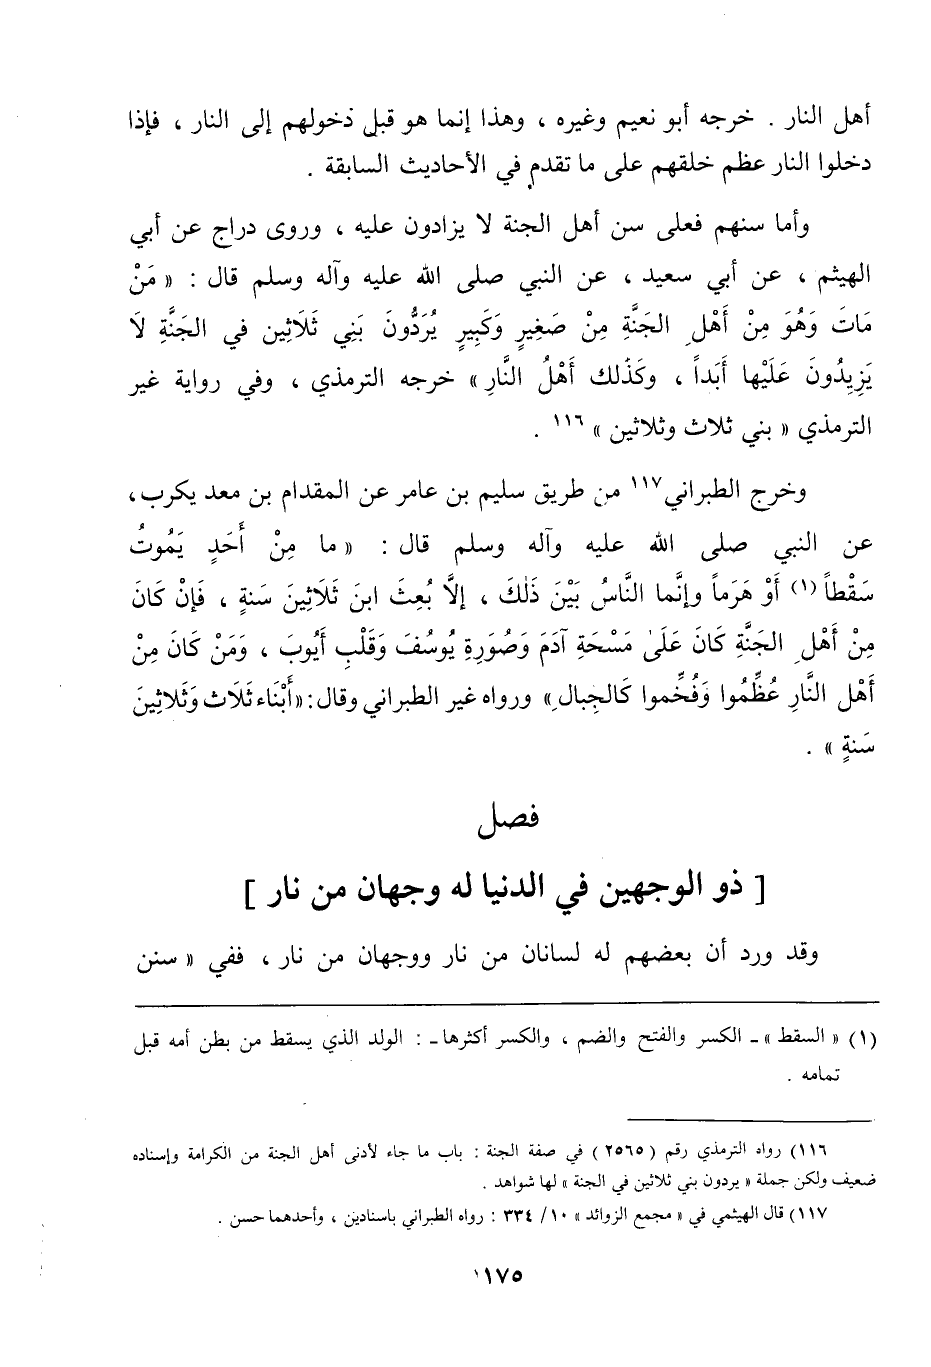 أهل النار . خرجه أبو نعيم وغيره ، وهذا إنما هو قبل دخولهم إلى النار ، فإذا
دخلوا النار عظم خلقهم على ما تقدم في الأحاديث السابقة .
وأما سنهم فعلى سن أهل الجنة لا يزادون عليه ، وروى دراج عن أبي
الهيثم ، عن أبي سعيد ، عن النبي صلى الله عليه وآله وسلم قال : « مَنْ
مَاتَ وَهُوَ مِنْ أَهْلِ الجَنَّةِ مِنْ صَغِيرٍ وَكَبِيرٍ يُرَدُّونَ بَنِي ثَلَاثِين في الجَنَّةِ لَا
يَزِيدُونَ عَلَيْها أَبَداً ، وكَذَلك أَهْلُ النَّارِ » خرجه الترمذي ، وفي رواية غير
الترمذي « بني ثلاث وثلاثين » ١١٦ .
وخرج الطبراني١١٧ من طريق سليم بن عامر عن المقدام بن معد يكرب ،
عن النبي صلى الله عليه وآله وسلم قال : « ما مِنْ أَحَدٍ يَمُوتُ
سَقْطاً (١) أَوْ هَرَماً وإنَّما النَّاسُ بَيْنَ ذَلكَ ، إلَّا بُعثَ ابنَ ثَلَاثِينَ سَنةٍ ، فَإنْ كَانَ
مِنْ أَهْلِ الجَنَّةِ كَانَ عَلَى مَسْحَةِ آدَمَ وَصُورَةِ يُوسُفَ وَقَلْبِ أَيُوبَ ، وَمَنْ كَانَ مِنْ
أَهْلِ النَّارِ عُظِّمُوا وَفُخِّموا كَالجِبالِ » ورواه غير الطبراني وقال : « أَبْنَاء ثَلَاث وَثَلاثِينَ
سَنةٍ » .
فصل
[ ذو الوجهين في الدنيا له وجهان من نار ]
وقد ورد أن بعضهم له لسانان من نار ووجهان من نار ، ففي « سنن
(١) « السقط » ـ الكسر والفتح والضم ، والكسر أكثرها ـ : الولد الذي يسقط من بطن أمه قبل
تمامه .
١١٦) رواه الترمذي رقم ( ٢٥٦٥ ) في صفة الجنة : باب ما جاء لأدنى أهل الجنة من الكرامة وإسناده
ضعيف ولكن جملة « يردون بني ثلاثين في الجنة » لها شواهد .
١١٧) قال الهيثمي في « مجمع الزوائد » ١٠/ ٣٣٤ : رواه الطبراني باسنادين ، وأحدهما حسن .
١٧٥